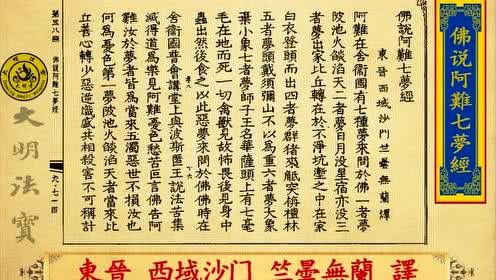 佛说阿難七夢經
佛說阿難七夢經
東晉西域沙門竺曇無蘭譯
阿難在舍衞國有七種夢來問於佛一者夢
陂池火燄滔天二者夢日月没星宿亦没三
者夢出家比丘轉在於不淨坑壍之中在家
白衣登頭而出四者夢群猪來觝突栴檀林
五者夢頭戴須彌山不以為重六者夢大象
棄小象七者夢師子王名華薩頭上有七毫
毛在地而死一切禽獸見故怖畏後見身中
蟲出然後食之以此惡夢來問於佛佛時在
舍衞國普會講堂上與波斯匿王說法苦集
滅得道為樂見阿難憂色愁苦叵言佛告阿
難汝於夢者皆為當來五濁惡世不損汝也
何為憂色第一夢陂池火燄滔天者當來比
丘善心轉少惡逆熾盛共相殺害不可稱計
第五八冊 佛說阿難七夢經 九·七一四
大明法寶
東晉 西域沙门 竺曇無蘭 譯